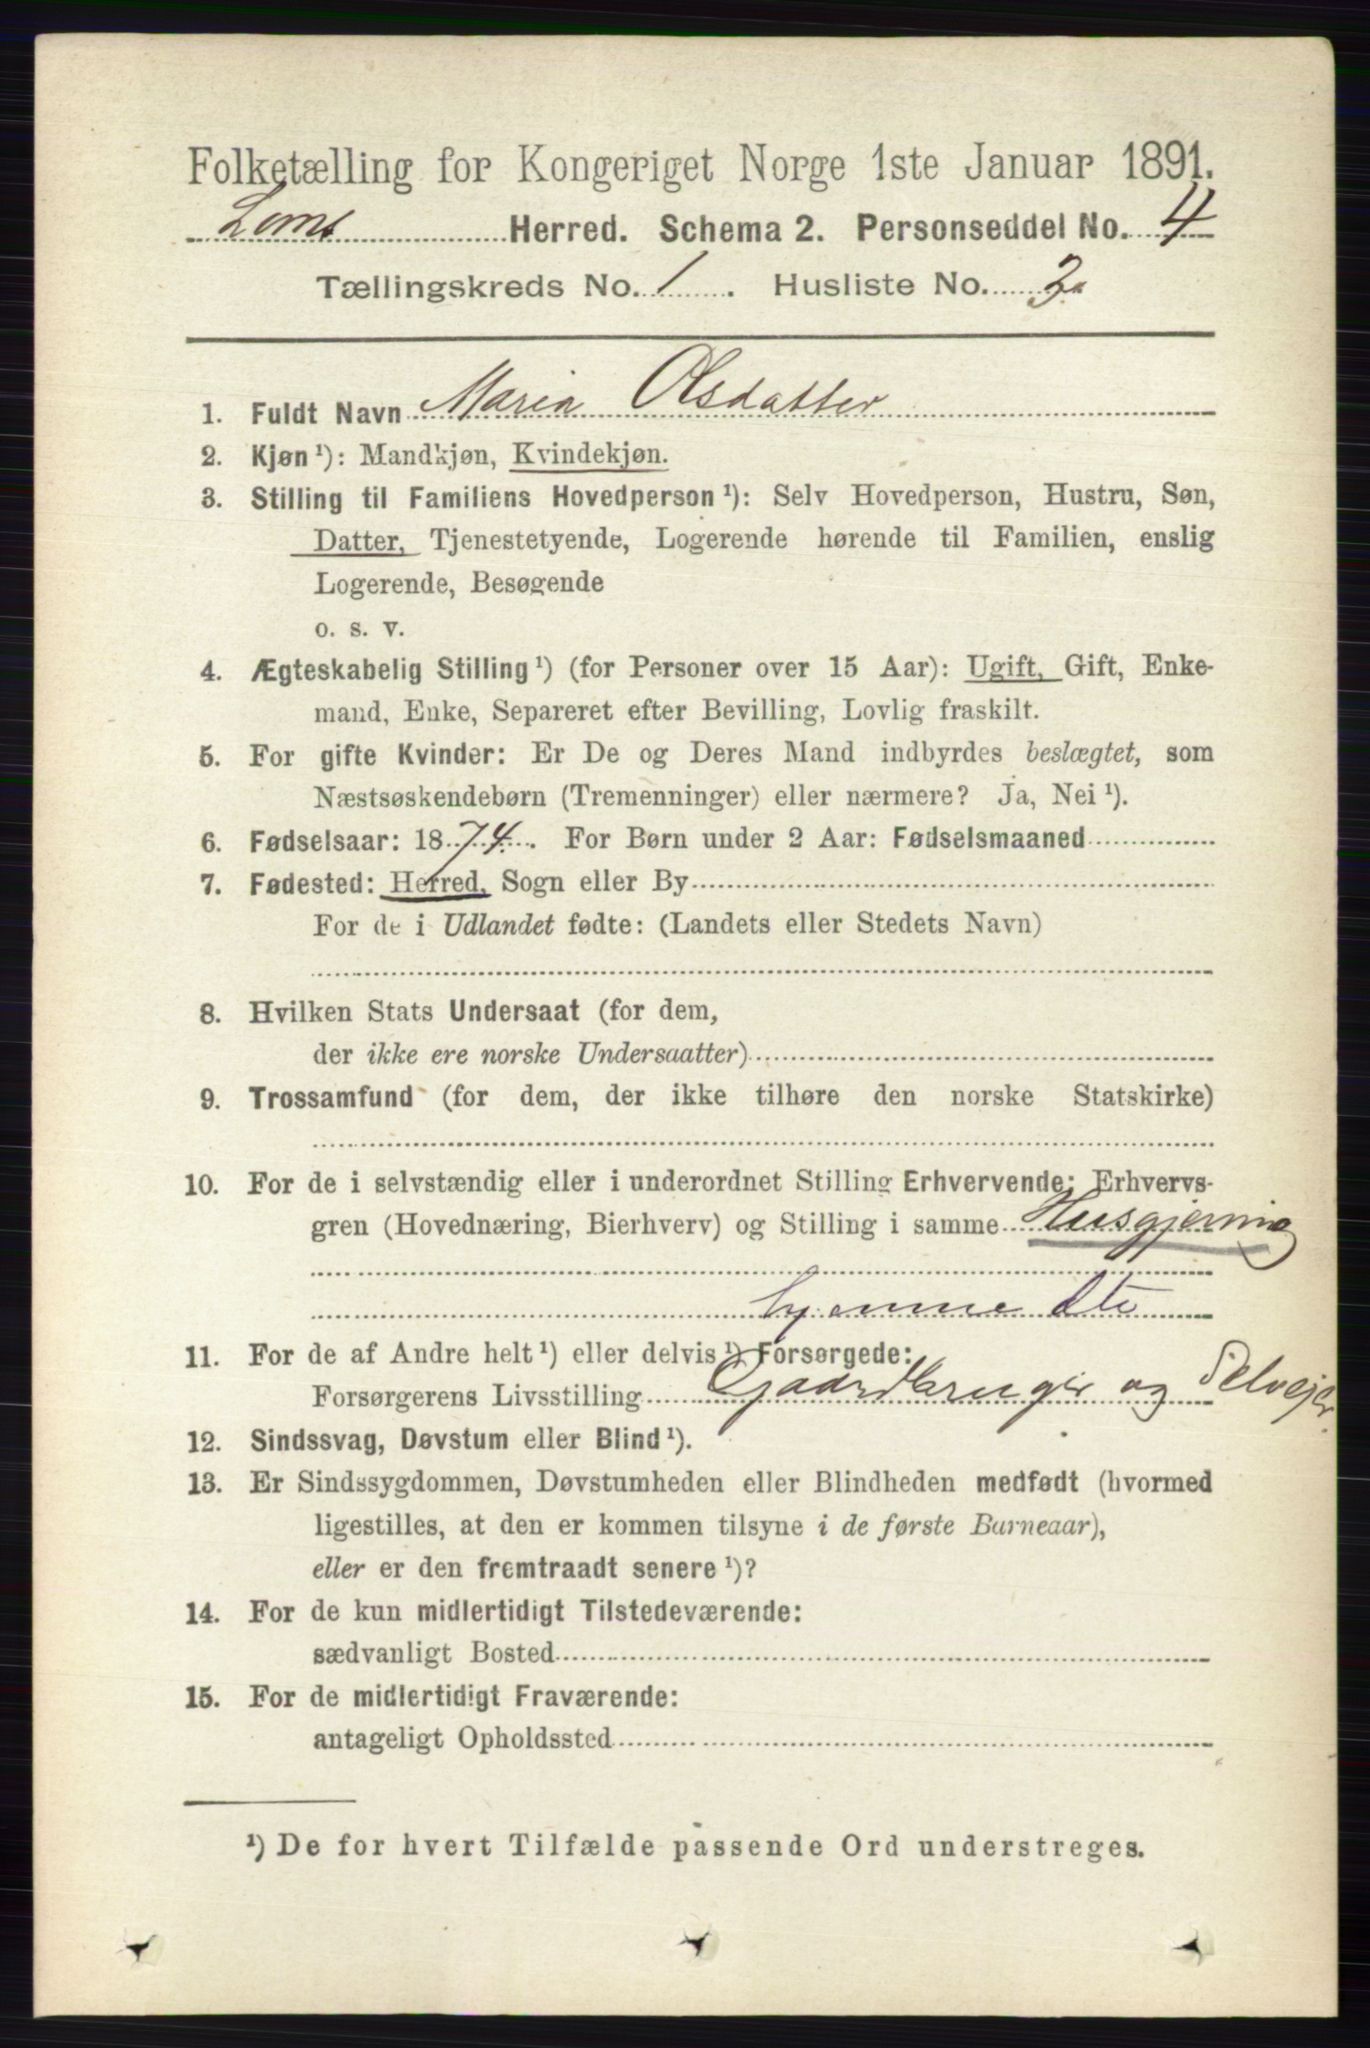 Folketælling for Kongeriget Norge 1ste Januar 1891.
Loms Herred. Schema 2. Personseddel No. 4
Tællingskreds No. 1. Husliste No. 2.
1. Fuldt Navn Maria Olsdatter
2. Kjøn ¹): Mandkjøn, Kvindekjøn.
3. Stilling til Familiens Hovedperson ¹): Selv Hovedperson, Hustru, Søn,
Datter, Tjenestetyende, Logerende hørende til Familien, enslig
Logerende, Besøgende
o. s. v.
4. Ægteskabelig Stilling ¹) (for Personer over 15 Aar): Ugift, Gift, Enke-
mand, Enke, Separeret efter Bevilling, Lovlig fraskilt.
5. For gifte Kvinder: Er De og Deres Mand indbyrdes beslægtet, som
Næstsøskendebørn (Tremenninger) eller nærmere? Ja, Nei ¹).
6. Fødselsaar: 1874. For Børn under 2 Aar: Fødselsmaaned
7. Fødested: Herred, Sogn eller By
For de i Udlandet fødte: (Landets eller Stedets Navn)
8. Hvilken Stats Undersaat (for dem,
der ikke ere norske Undersaatter)
9. Trossamfund (for dem, der ikke tilhøre den norske Statskirke)
10. For de i selvstændig eller i underordnet Stilling Erhvervende: Erhvervs-
gren (Hovednæring, Bierhverv) og Stilling i samme Husgjerning
hjemme dtr
11. For de af Andre helt ¹) eller delvis ¹) Forsørgede:
Forsørgerens Livsstilling Gaardbruger og Selvejer
12. Sindssvag, Døvstum eller Blind ¹).
13. Er Sindssygdommen, Døvstumheden eller Blindheden medfødt (hvormed
ligestilles, at den er kommen tilsyne i de første Barneaar),
eller er den fremtraadt senere ¹)?
14. For de kun midlertidigt Tilstedeværende:
sædvanligt Bosted
15. For de midlertidigt Fraværende:
antageligt Opholdssted
¹) De for hvert Tilfælde passende Ord understreges.